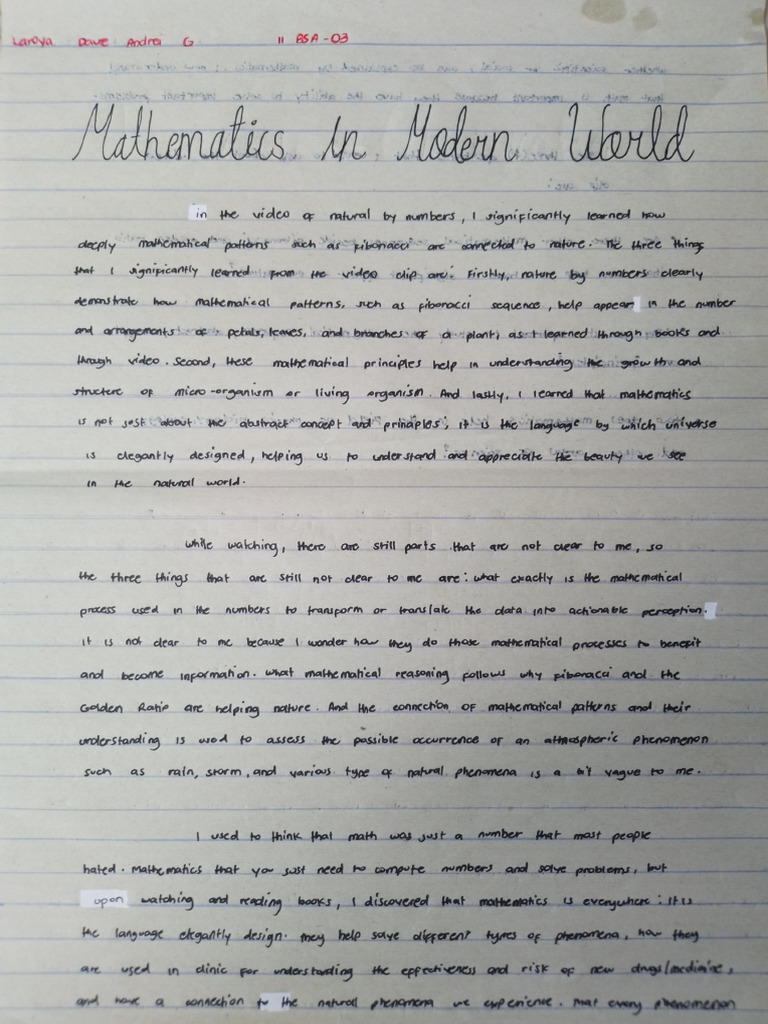 Laroya Dave Andrei G II BSA-03
Mathematics In Modern World
in the video of natural by numbers, I significantly learned how
deeply mathematical patterns such as fibonacci are connected to nature. The three things
that I significantly learned from the video clip are: Firstly, nature by numbers clearly
demonstrate how mathematical patterns, such as fibonacci sequence, help appear in the number
and arrangements of petals, leaves, and branches of a plant, as I learned through books and
through video. Second, these mathematical principles help in understanding the growth and
structure of micro-organism or living organism. And lastly, I learned that mathematics
is not just about the abstract concept and principles; it is the language by which universe
is elegantly designed, helping us to understand and appreciate the beauty we see
in the natural world.
While watching, there are still parts that are not clear to me, so
the three things that are still not clear to me are: what exactly is the mathematical
process used in the numbers to transform or translate the data into actionable perception.
it is not clear to me because I wonder how they do those mathematical processes to benefit
and become information. What mathematical reasoning follows why fibonacci and the
Golden Ratio are helping nature. And the connection of mathematical patterns and their
understanding is used to assess the possible occurrence of an atmospheric phenomenon
such as rain, storm, and various type of natural phenomena is a bit vague to me.
I used to think that math was just a number that most people
hated. Mathematics that you just need to compute numbers and solve problems, but
upon watching and reading books, I discovered that mathematics is everywhere: it is
the language elegantly design. they help solve different types of phenomena, how they
are used in clinic for understanding the effectiveness and risk of new drugs/medicine,
and have a connection to the natural phenomena we experience. that every phenomenon